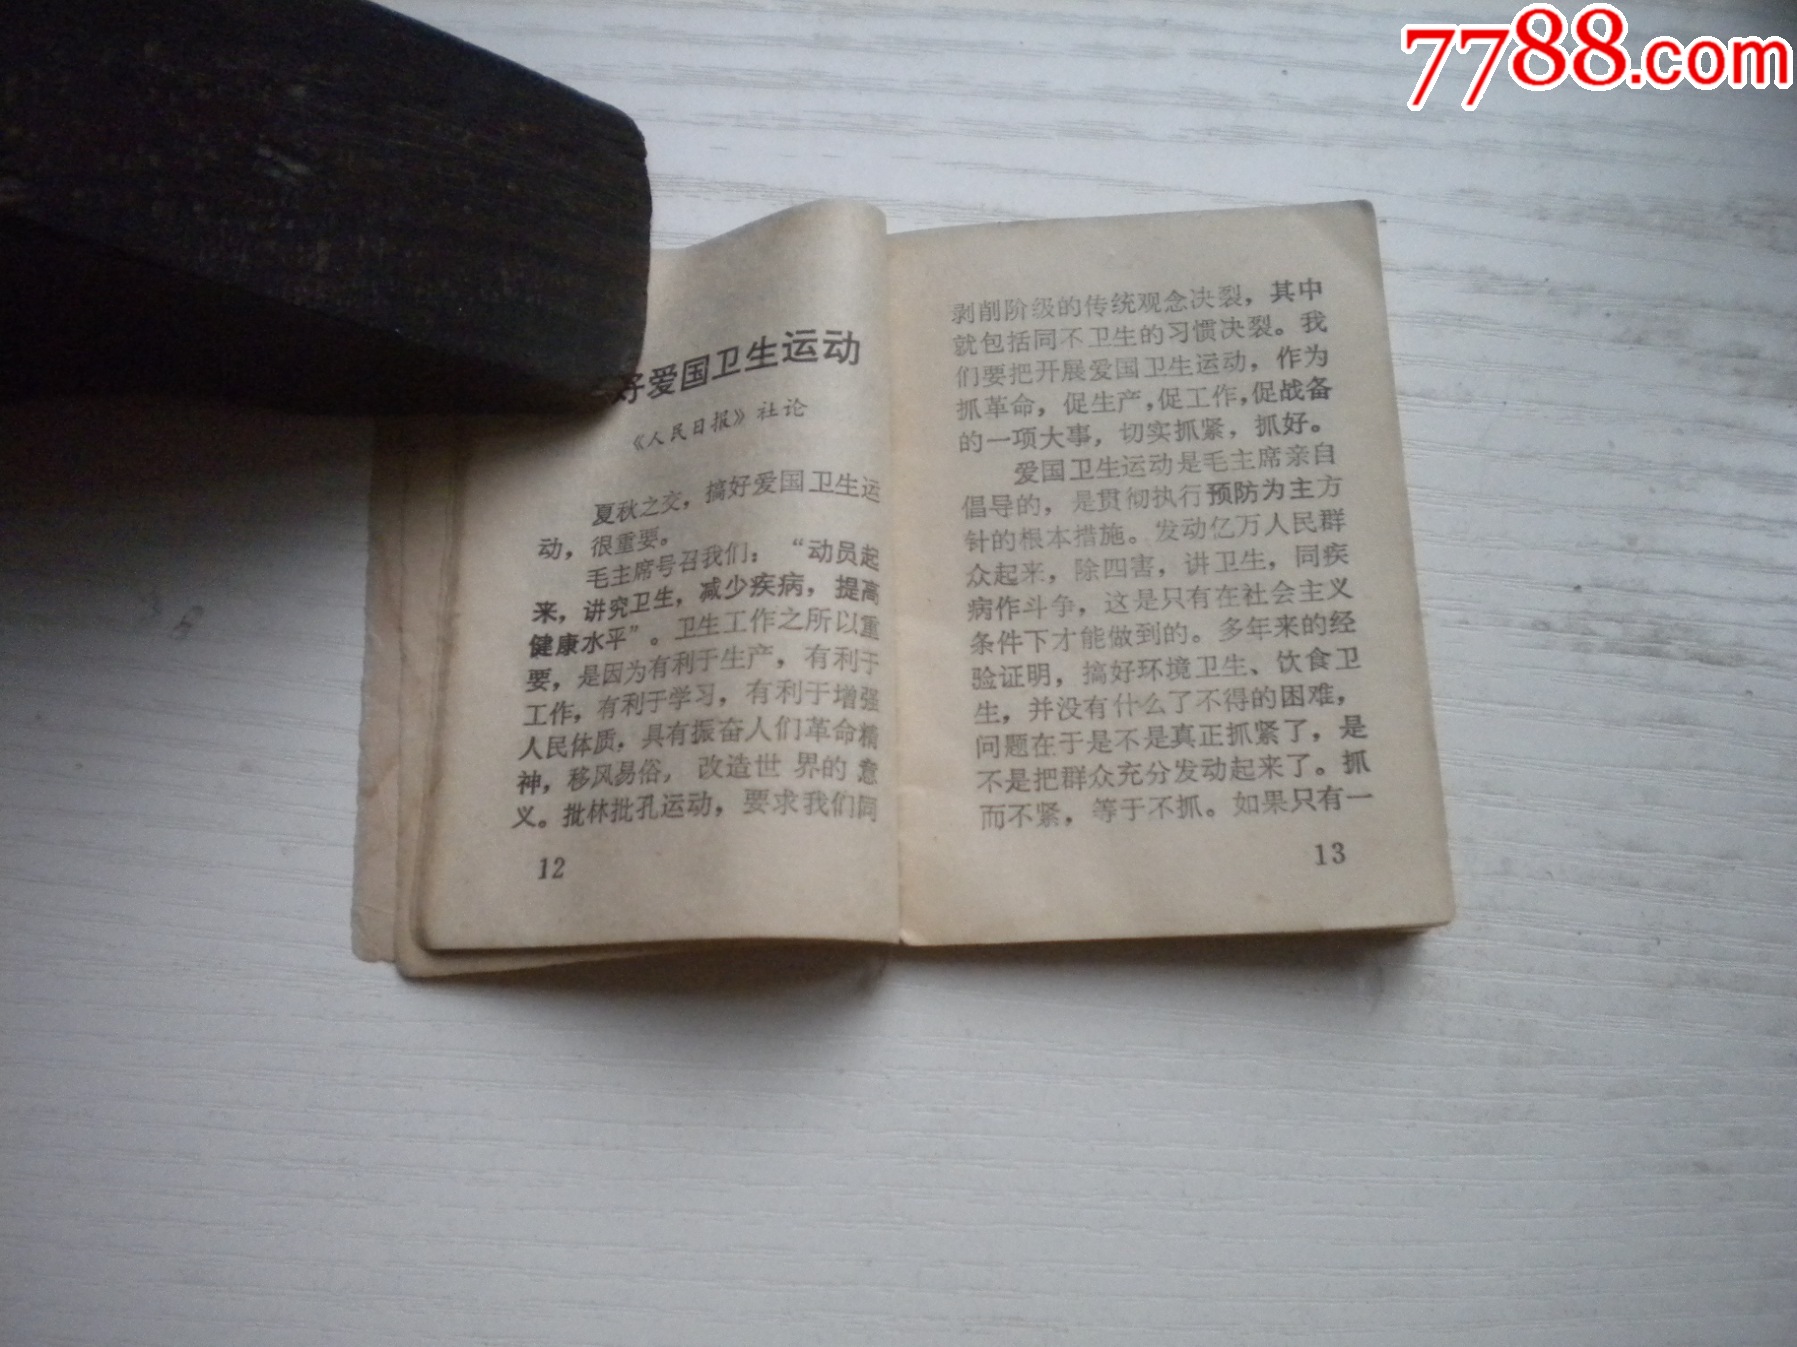 7788.com
好爱国卫生运动
《人民日报》社论
夏秋之交，搞好爱国卫生运
动，很重要。
毛主席号召我们：“动员起
来，讲究卫生，减少疾病，提高
健康水平”。卫生工作之所以重
要，是因为有利于生产，有利于
工作，有利于学习，有利于增强
人民体质，具有振奋人们革命精
神，移风易俗，改造世界的意
义。批林批孔运动，要求我们同
12
剥削阶级的传统观念决裂，其中
就包括同不卫生的习惯决裂。我
们要把开展爱国卫生运动，作为
抓革命，促生产，促工作，促战备
的一项大事，切实抓紧，抓好。
爱国卫生运动是毛主席亲自
倡导的，是贯彻执行预防为主方
针的根本措施。发动亿万人民群
众起来，除四害，讲卫生，同疾
病作斗争，这是只有在社会主义
条件下才能做到的。多年来的经
验证明，搞好环境卫生、饮食卫
生，并没有什么了不得的困难，
问题在于是不是真正抓紧了，是
不是把群众充分发动起来了。抓
而不紧，等于不抓。如果只有一
13